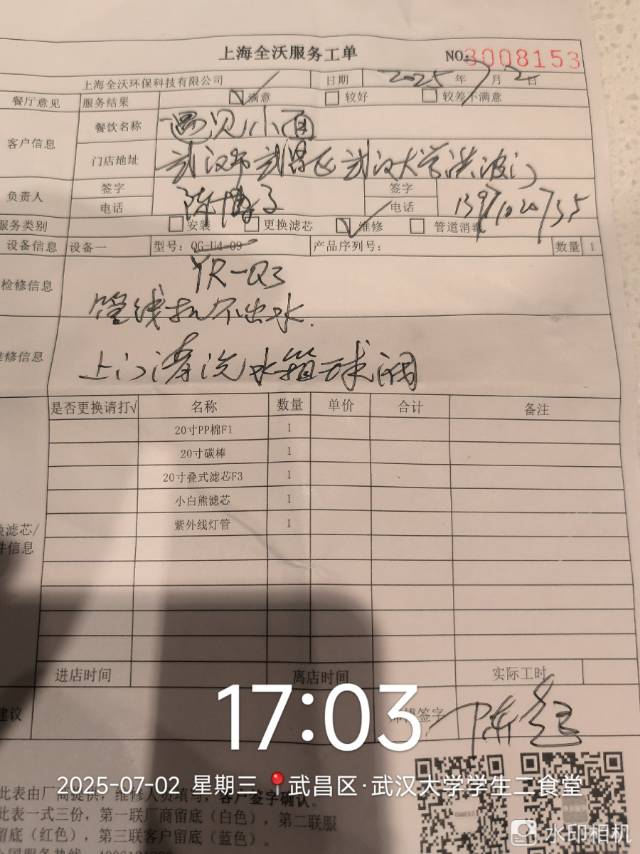 上海全沃服务工单
NO:3008153
上海全沃环保科技有限公司 日期 2025年7月2日
餐厅意见 服务结果 ☑满意 □较好 □较差不满意
客户信息 餐饮名称 遇见小面
门店地址 武汉市武昌区武汉大学洪波门
负责人 签字 签字
电话 陈 子 电话
服务类别 □安装 □更换滤芯 ☑维修 □管道消毒
设备信息 设备一 型号:QG-U4-09 产品序列号: 数量 1
YR-Q3
检修信息 管线机不出水.
维修信息 上门清洗水箱球阀
是否更换请打√ 名称 数量 单价 合计 备注
20寸PP棉F1 1
20寸碳棒 1
20寸叠式滤芯F3 1
小白熊滤芯 1
紫外线灯管 1
换滤芯/
件信息
进店时间 离店时间 实际工时
建议 签字
17:03
2025-07-02 星期三 武昌区·武汉大学学生二食堂
此表由厂商提供,维修人员填写,客户签字确认。
此表一式三份,第一联厂商留底(白色),第二联服
留底(红色),第三联客户留底(蓝色)。
水印相机